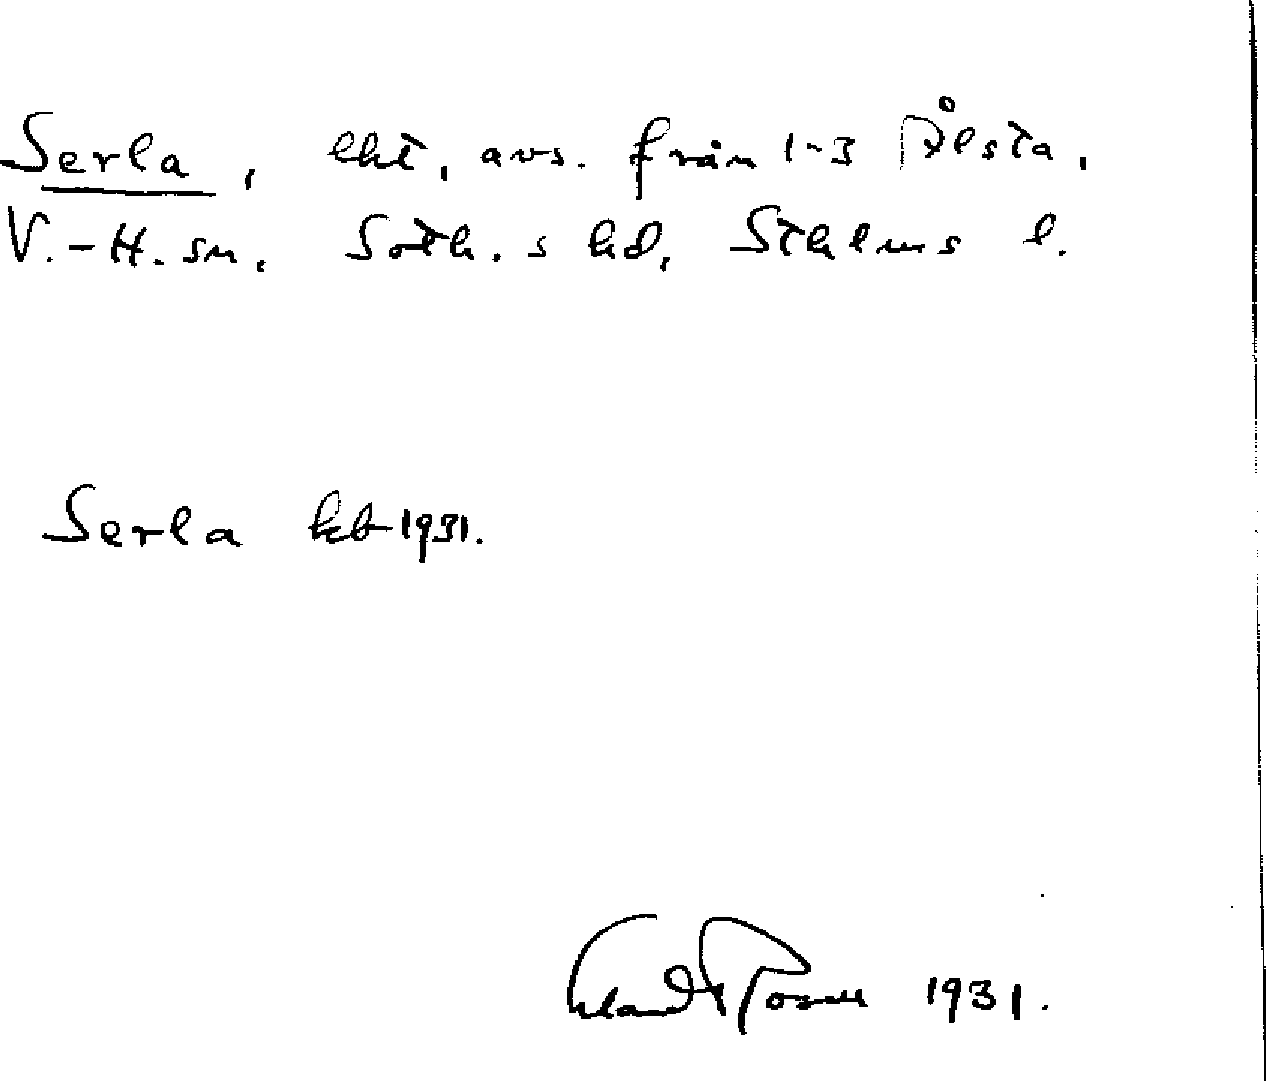 Serla, lht, avs. från 1-3 Ålsta,
V.-H. sn, Soth. s hd, Sthlms l.
Serla kb 1931.
Erland Rosell 1931.